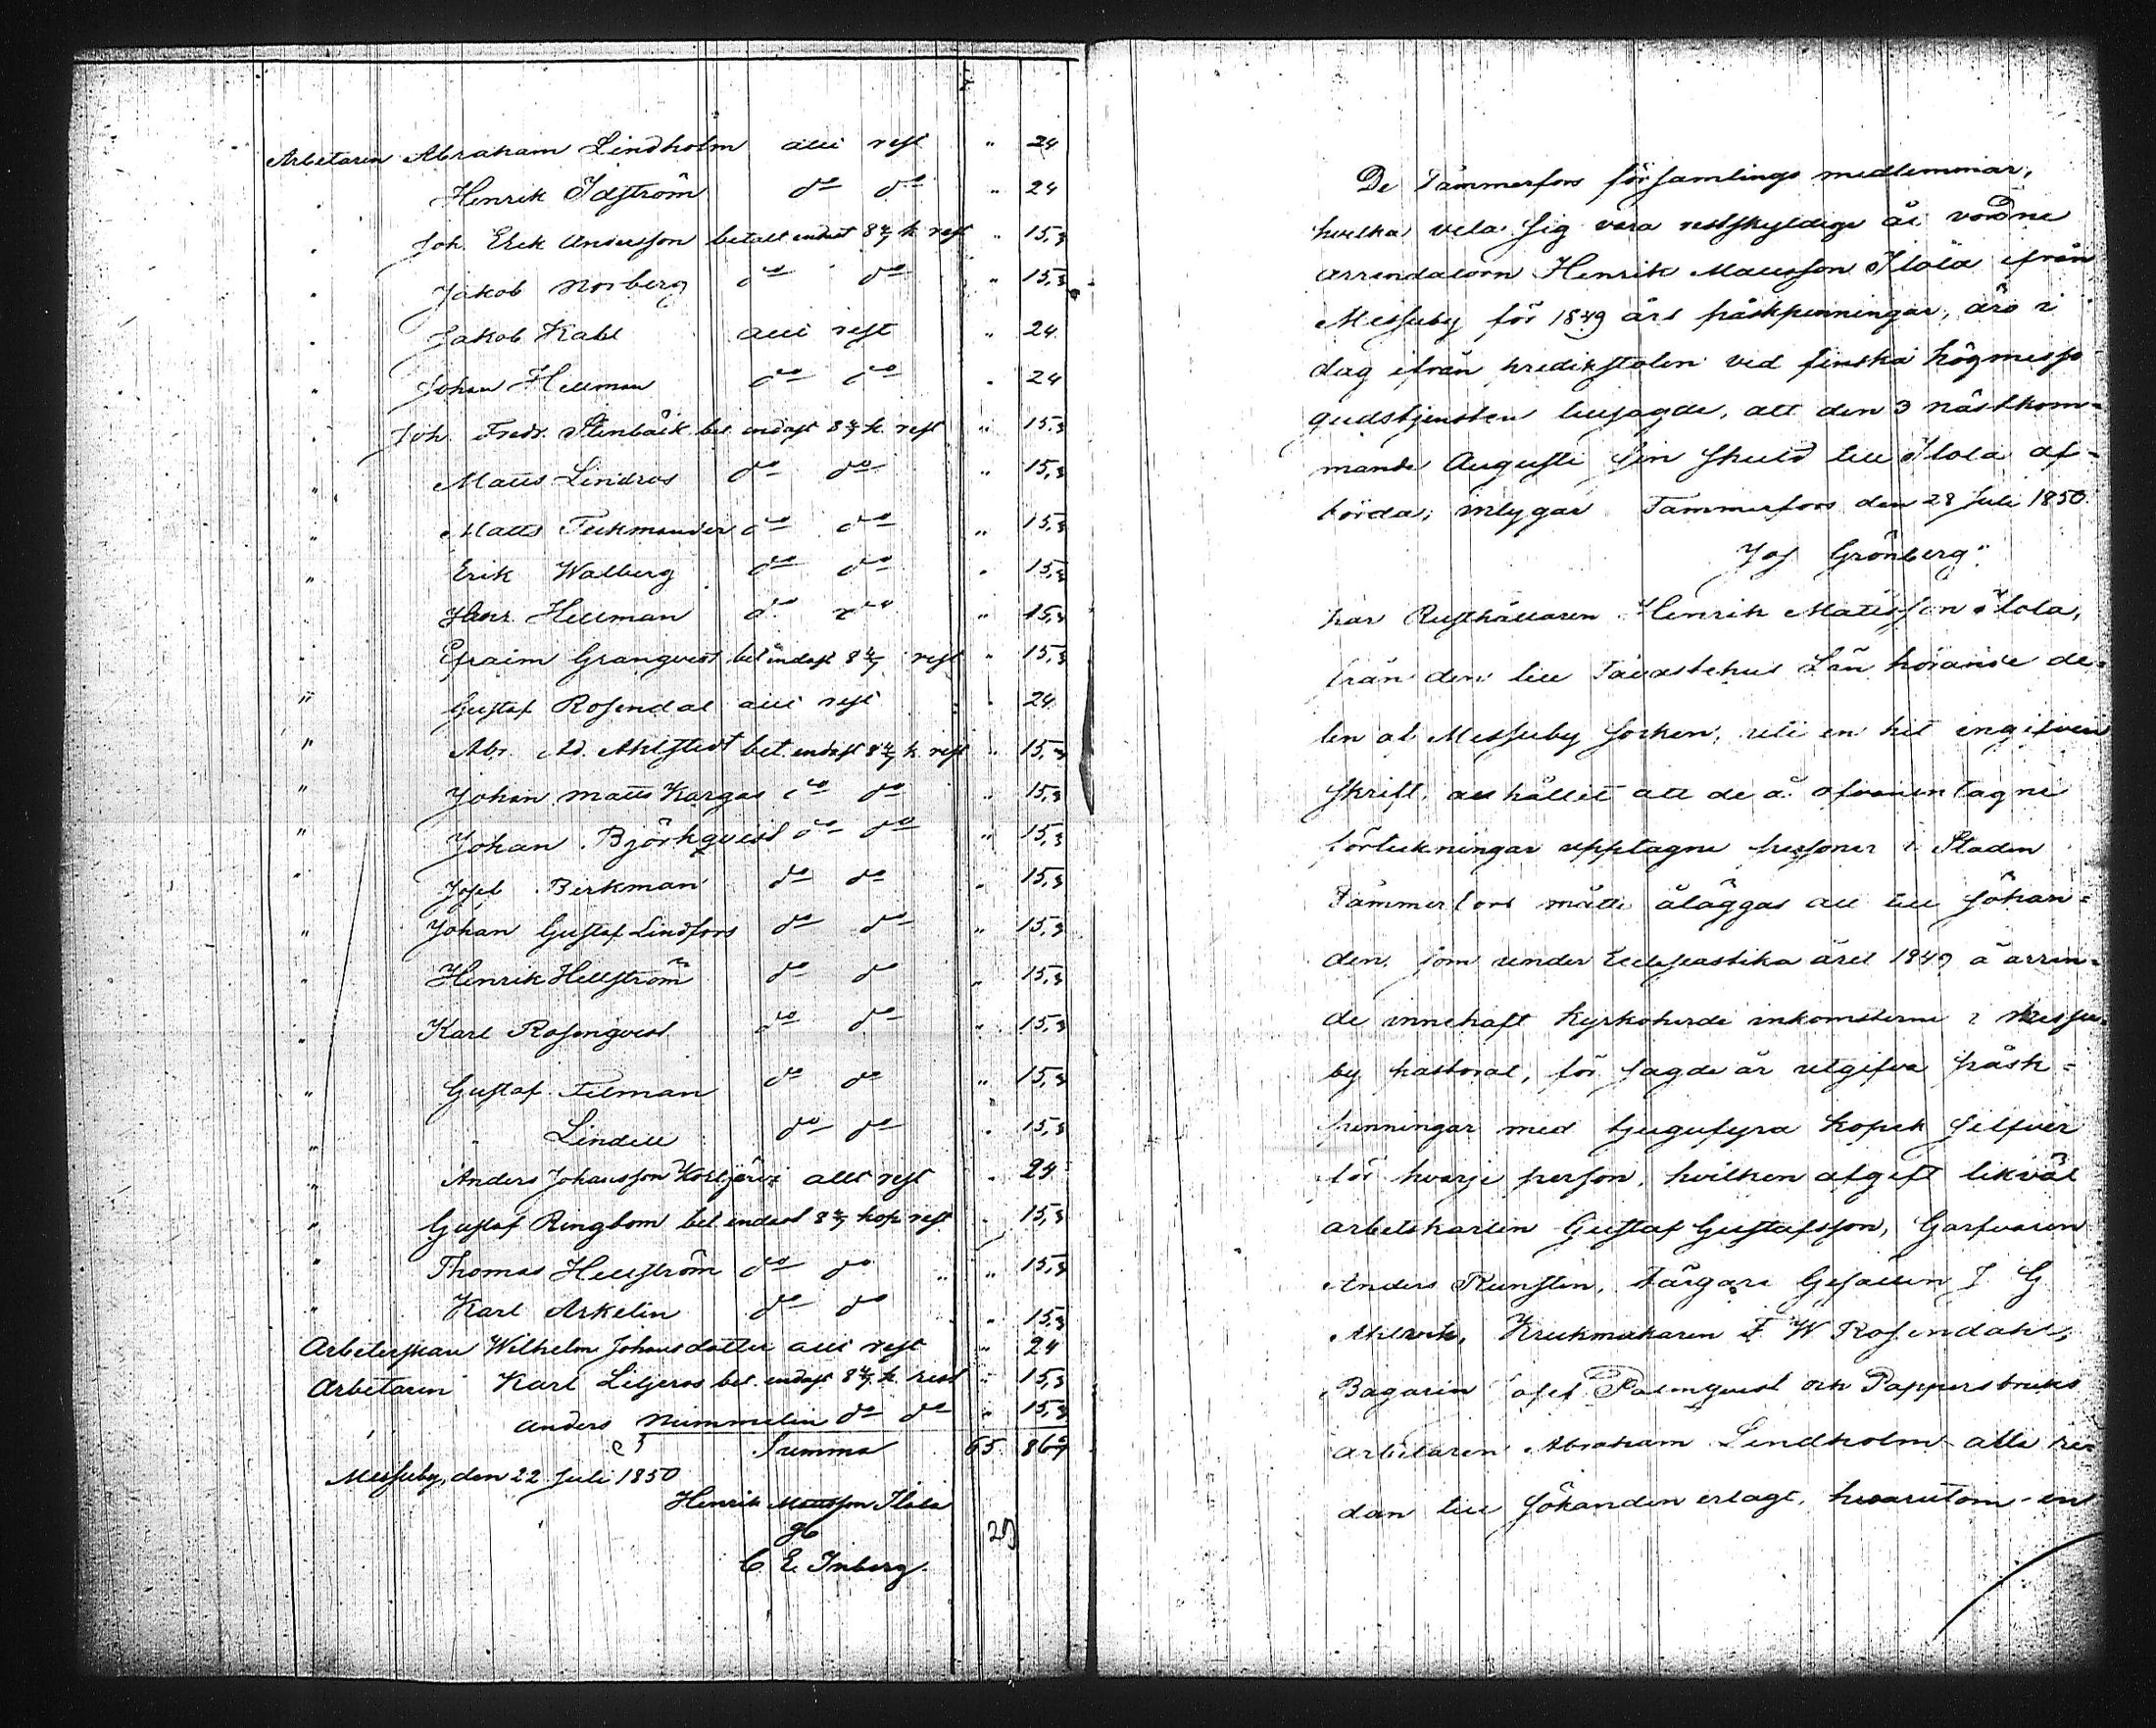 Arbetaren Abraham Lindholm allt rest " 24
" Henrik Idström do do " 24
" Joh. Erik Andersson betalt endast 8 4/7 k rest " 15,3
" Jakob Norberg do do " 15,3
" Jakob Kahl allt rest " 24
" Johan Hellman do do " 24
" Joh. Fredr. Stenbäck bet. endast 8 4/7 k. rest " 15,3
" Matts Lindros do do " 15,3
" Matts Tuckmander do do " 15,3
" Erik Walberg do do " 15,3
" Henr. Hellman do do " 15,3
" Efraim Granqvist bet endast 8 4/7 rest " 15,3
" Gustaf Rosendal allt rest " 24
" Abr. Ad. Ahlstedt bet. endast 8 4/7 k. rest " 15,3
" Johan Matts Kargas do do " 15,3
" Johan Björkqvist do do " 15,3
" Josef Berkman do do " 15,3
" Johan Gustaf Lindfors do do " 15,3
" Henrik Hellström do do " 15,3
" Karl Rosenqvist do do " 15,3
" Gustaf Tilman do do " 15,3
" " Lindell do do " 15,3
" Anders Johansson allt rest " 24
" Gustaf Ringbom bet endast 8 4/7 kop rest " 15,3
" Thomas Hellström do do " 15,3
" Karl Arkelin do do " 15,3
Arbeterskan Wilhelm Johansdotter allt rest " 24
Arbetaren Karl Liljeros bet. endast 8 4/7 k. rest " 15,3
" Anders Nummelin do do " 15,3
Summa 65. 86
Messuby, den 22 Juli 1850
Henrik Mattsson Ilola
gb
C E Inberg.
De Tammerfors församlings medlemmar,
hvilka veta sig vara restskyldige åt vordne
arrendatorn Henrik Mattsson Ilola ifrån
Messuby för 1849 års påskpenningar, äro i
dag ifrån predikstolen vid finska högmesso
gudstjensten tillsagde, att den 3 nästkom=
mande Augusti sin skuld till Ilola af=
börda; intygar Tammerfors den 28 Juli 1850.
Jos Grönberg"
har Rusthållaren Henrik Mattsson Ilola,
från den till Tavastehus Län hörande de=
len af Messuby socken, uti en hit ingifven
skrift, anhållet att de å ofvanintagne
förteckningar upptagne personer i Staden
Tammerfors måtte åläggas att till sökan=
den, som under Ecclesiastika året 1849 å arren=
de innehaft Kyrkoherde inkomsterne i Messu=
by pastorat, för sagde år utgifva påsk=
penningar med tjugufyra kopek silfver
för hvarje person, hvilken afgift likväl
arbetskarlen Gustaf Gustafsson, Garfvaren
Anders Runsten, Färgare Gesällen J G
Krukmakaren F W Rosendahl,
Bagaren Josef Palmqvist och Pappersbruks
arbetaren Abraham Lindholm alla re=
dan till sökanden erlagt, hvarutom en